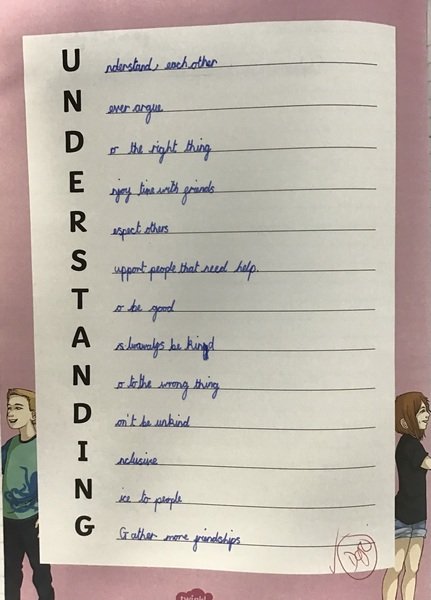 U nderstand, each other
N ever argue
D o the right thing
E njoy time with friends
R espect others
S upport people that need help.
T o be good
A s lawalys be kind
N o to the wrong thing
D on't be unkind
I nclusive
N ice to people
G Gather more friendships
Dojo
twinkl